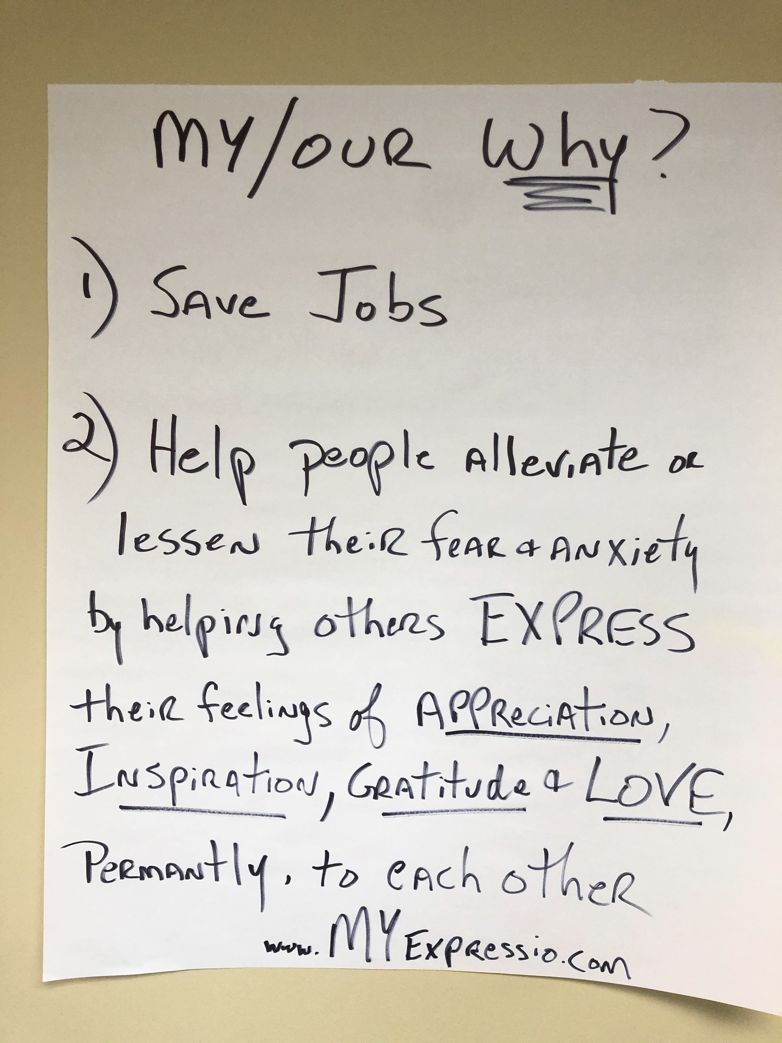 MY/OUR Why?
1) SAve Jobs
2) Help people AlleviAte oR
lessen theiR feAR & ANxiety
by helping otheRs EXPRESS
theiR feelings of APPReciATION,
INSPIRATION, GRAtitude & LOVE,
PeRMANtly, to eAch otheR
www.MYExpRessio.com